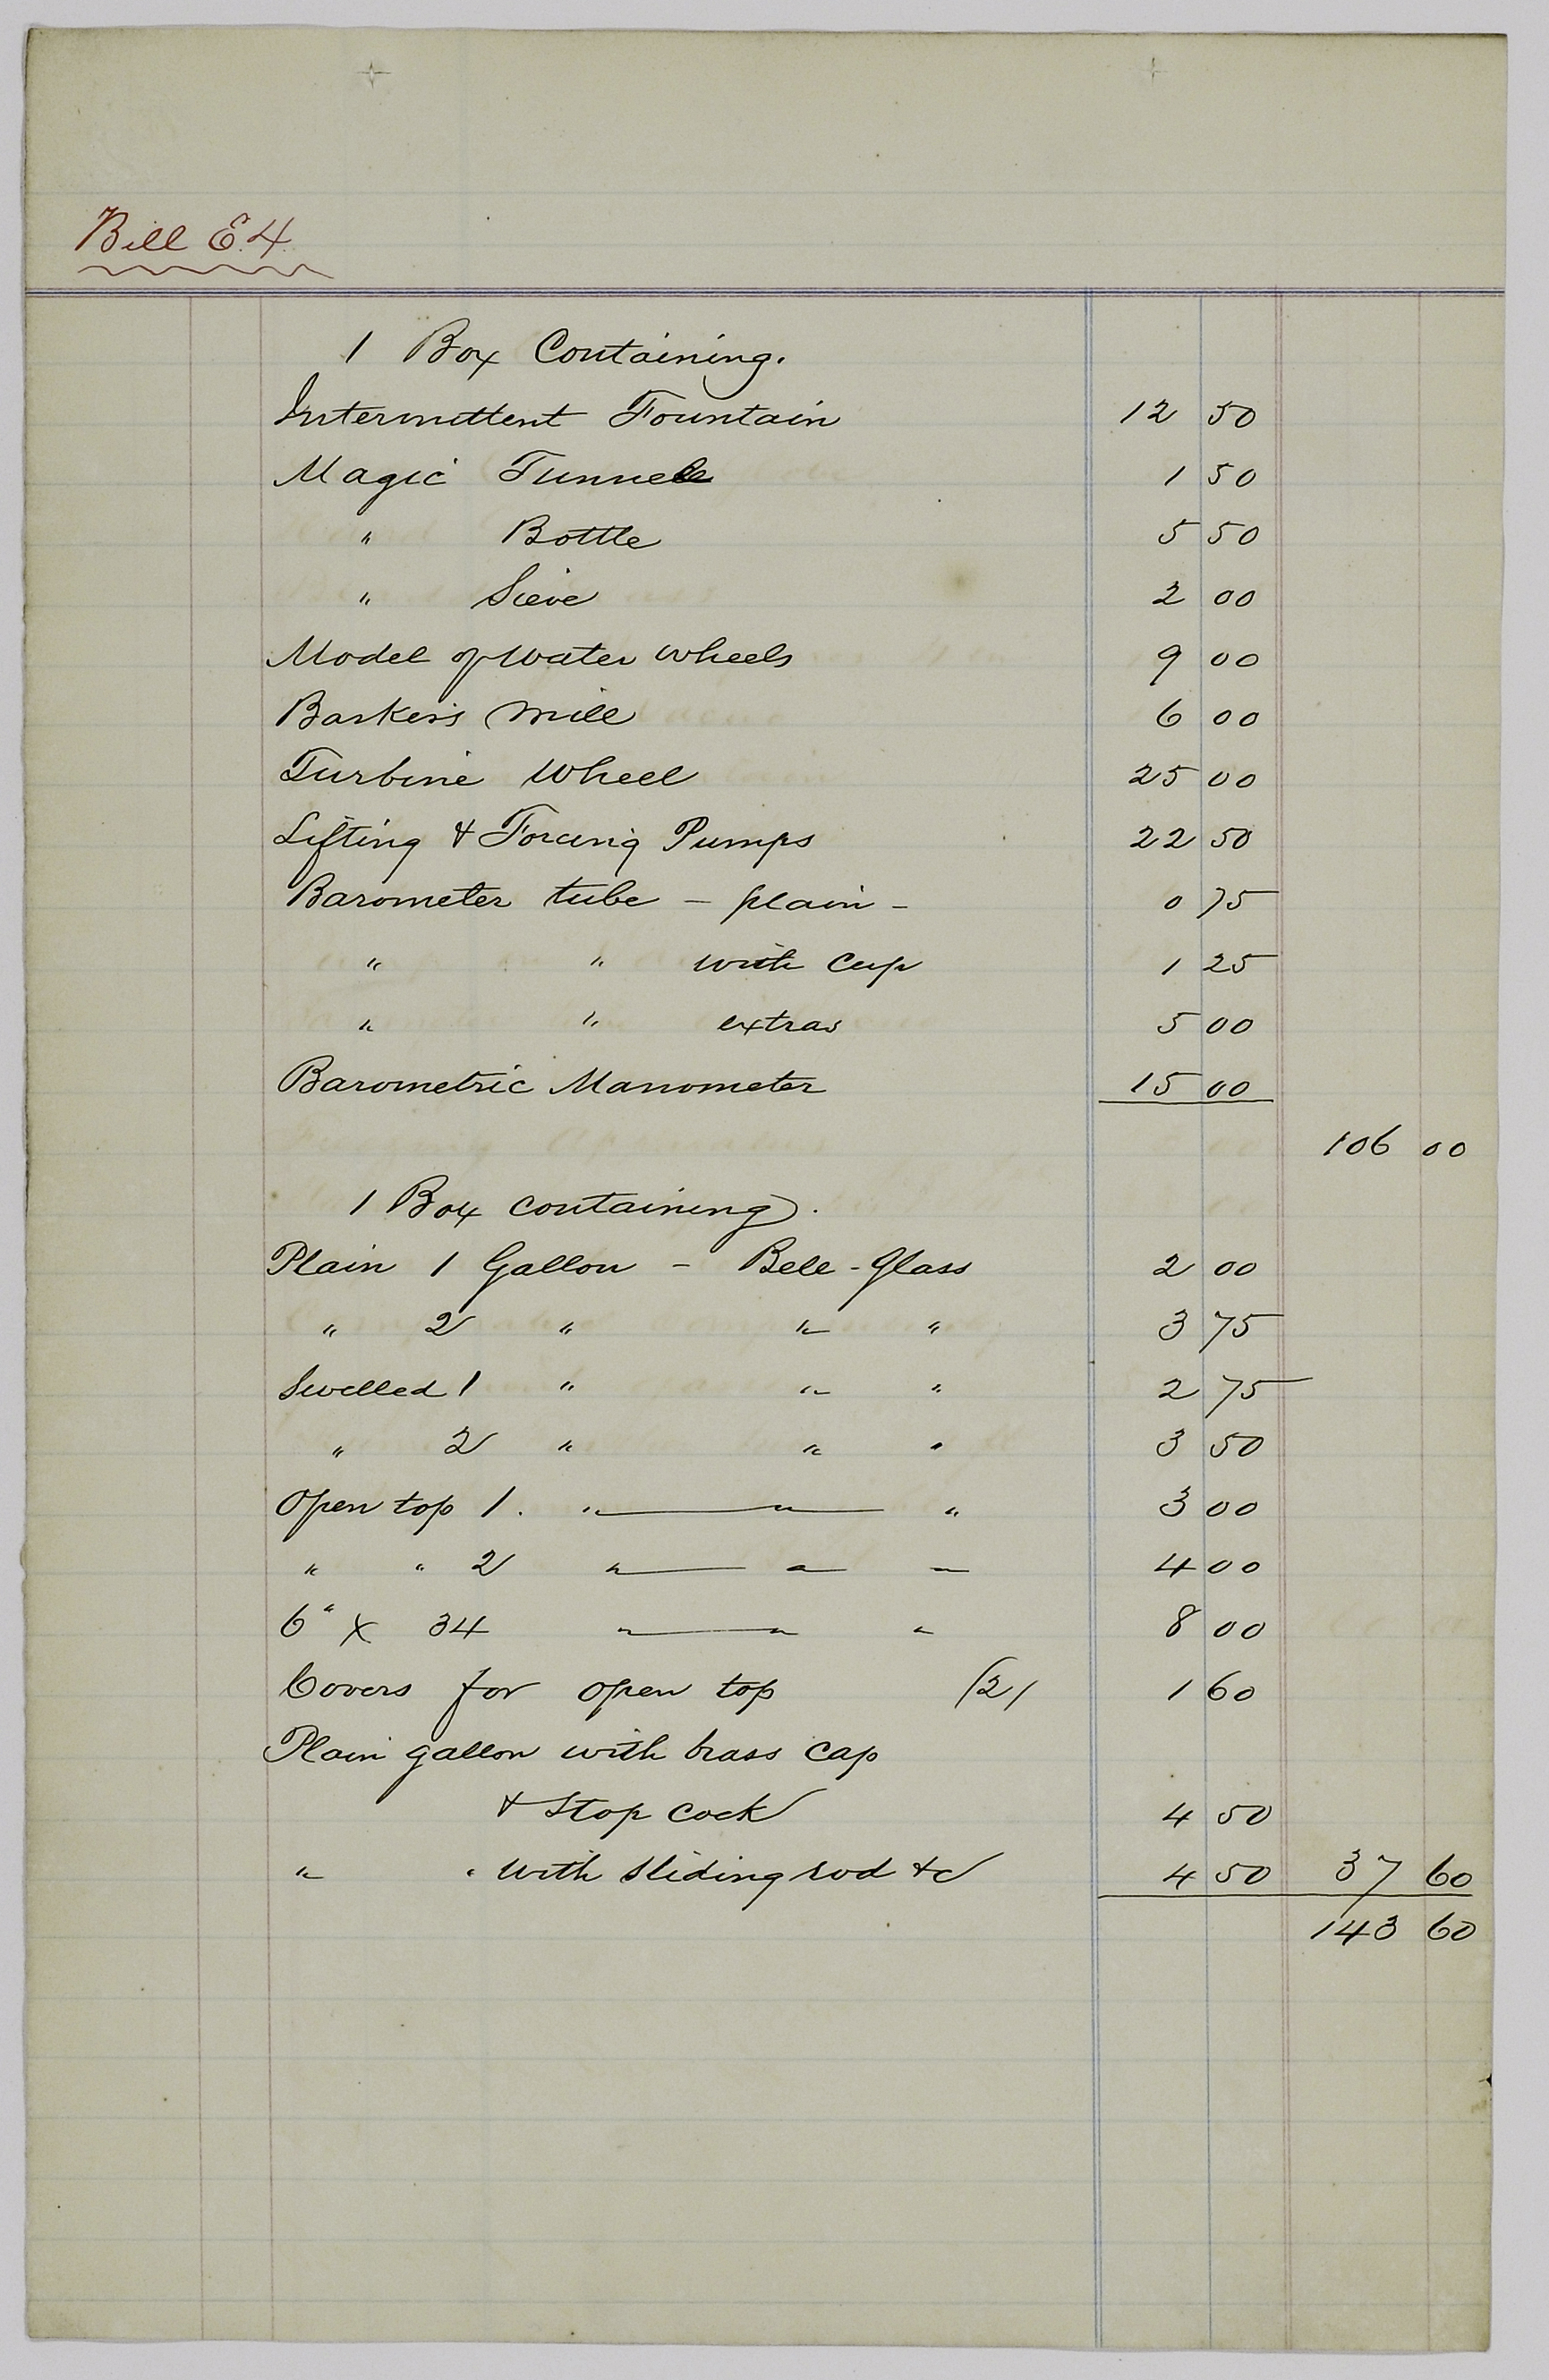 Bill E.4.
1 Box Containing.
Intermittent Fountain 12 50
Magic Funnel 1 50
" Bottle 5 50
" Sieve 2 00
Model of Water Wheels 9 00
Barker's Mill 6 00
Turbine Wheel 25 00
Lifting & Forcing Pumps 22 50
Barometer tube – plain – 0 75
" " with Cup 1 25
" " extras 5 00
Barometric Manometer 15 00
106 00
1 Box containing.
Plain 1 Gallon – Bell-Glass 2 00
" 2 " " " 3 75
Swelled 1 " " " 2 75
" 2 " " " 3 50
Open top 1. " — " — " 3 00
" " 2 " — " — " 4 00
6" x 34 " — " " 8 00
Covers for open top (2) 1 60
Plain gallon with brass cap
& Stop cock 4 50
" " with sliding rod &c 4 50 37 60
143 60